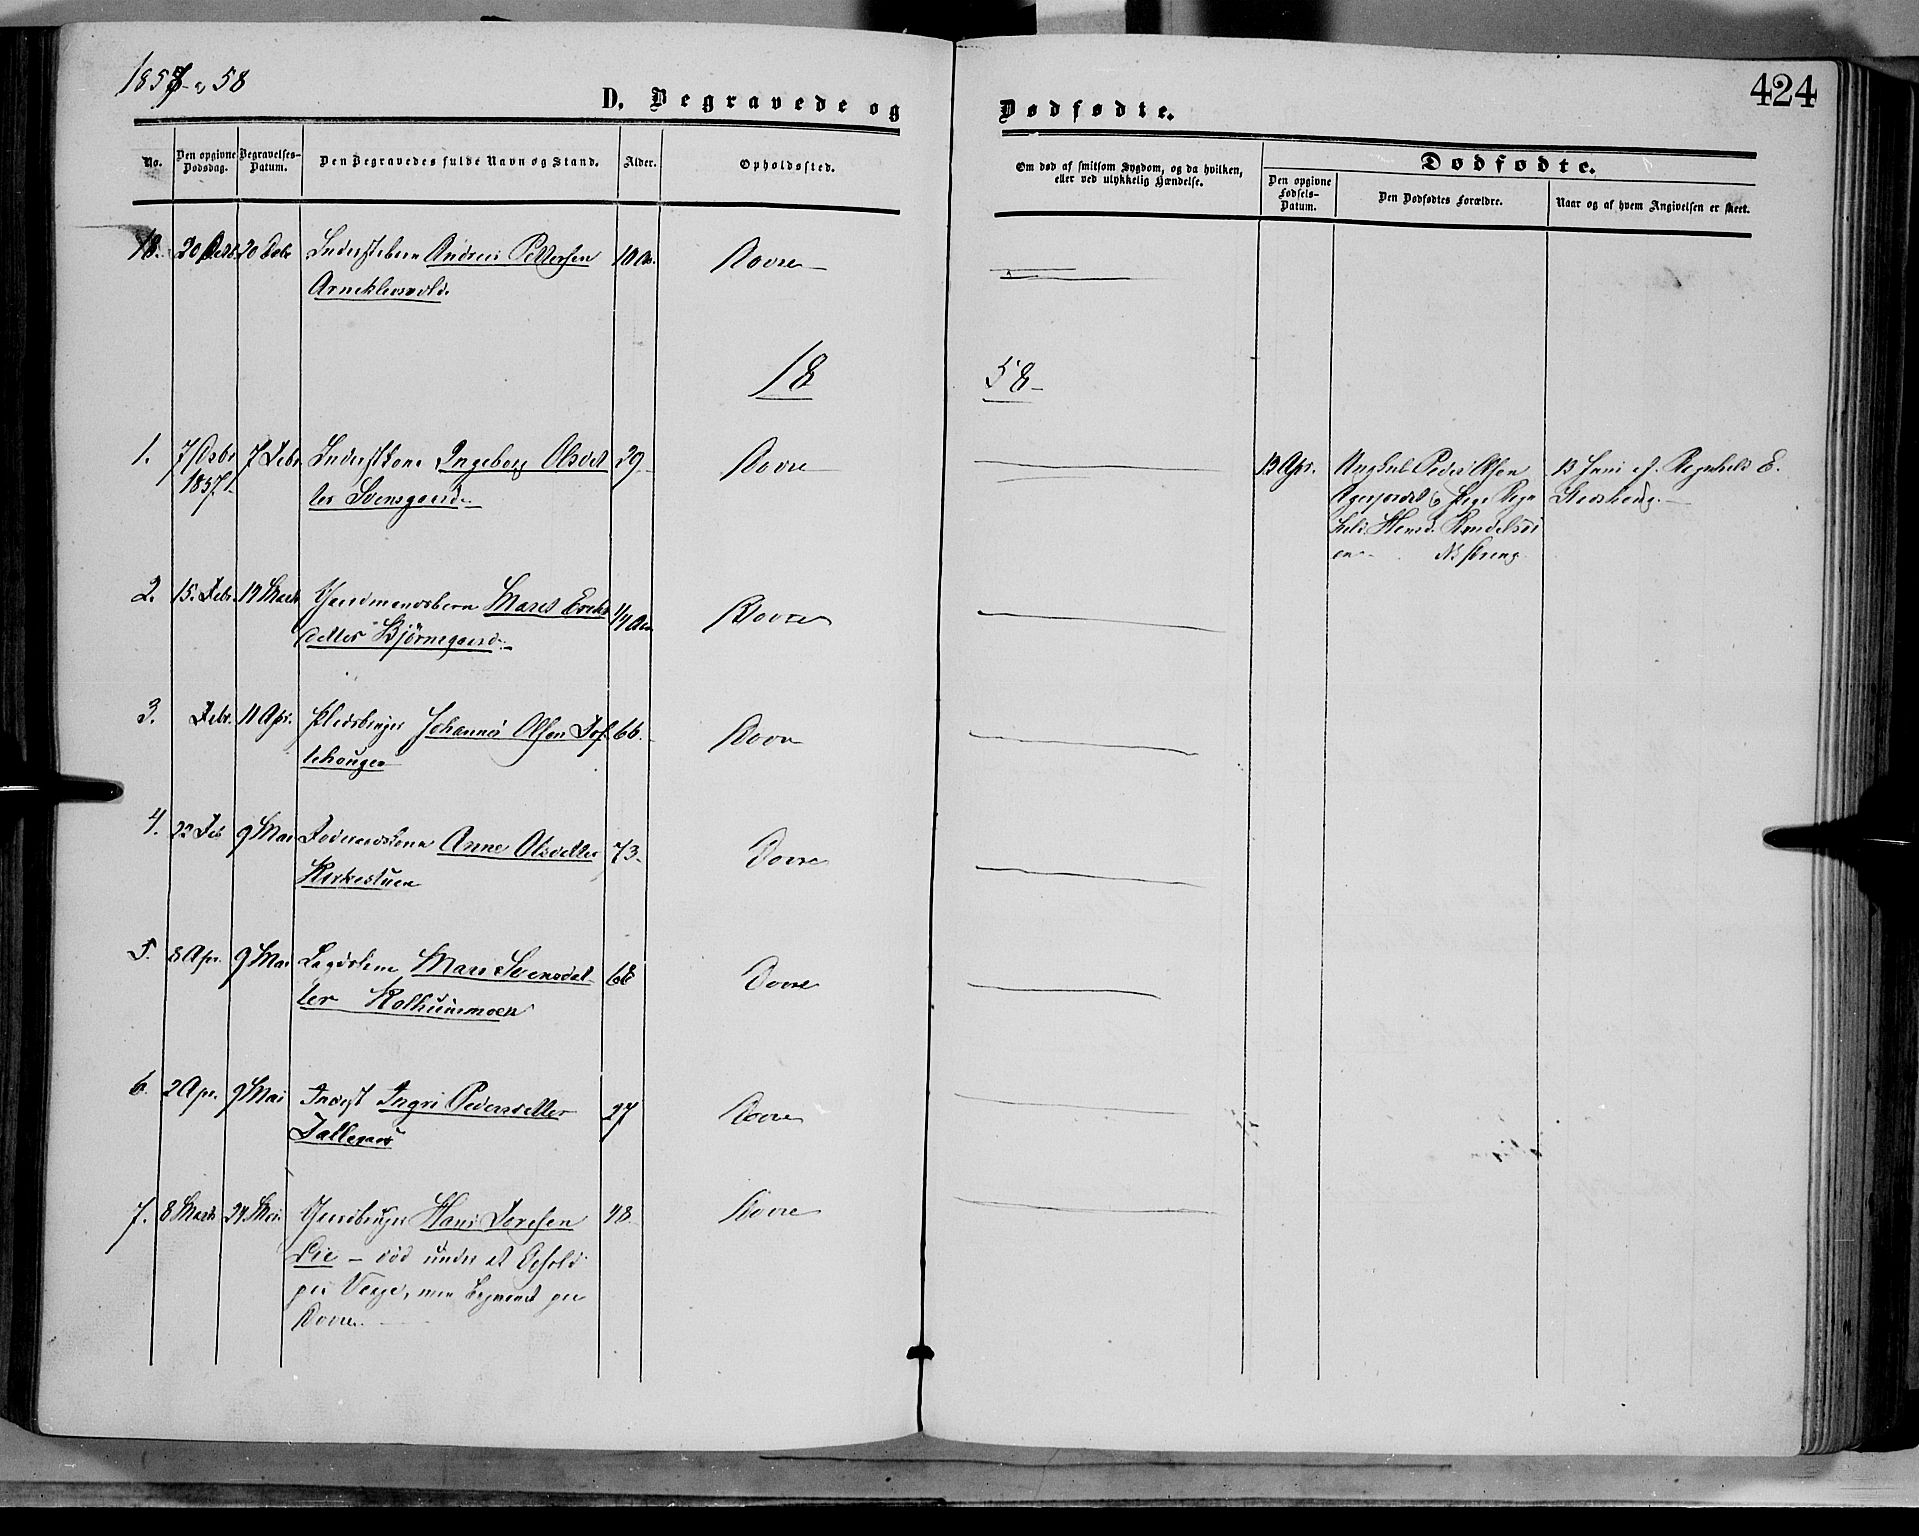 1857 - 58
424
D. Begravede og Dødfødte.
No.
Den opgivne Dødsdag.
Begravelses-Datum.
Den Begravedes fulde Navn og Stand.
Alder.
Opholdssted.
Om død af smitsom Sygdom, og da hvilken, eller ved ulykkelig Hændelse.
Dødfødte.
Den opgivne Fødsels-Datum.
Den Dødfødtes Forældre.
Naar og af hvem Angivelsen er skeet.
18. Andreas Pettersen Dovre
18 58
1. 7 Debr 7 Febr. Inderstkone Ingeborg Olsdat 29 Dovre
1857
ter Svensgaard
13 Apr. Ungkarl Peder Olsen
Pige Ragn
hild
13 Juni af Ragnhild E.
2. 15. Febr. 14 Marts Gaardmandsbarn Marit Erik Dovre
datter Bjørnegaard
3. Febr. 11 Apr. Pladsbruger Johannes Olsen Tof 66. Dovre
tehougen
4. 22 Feb 9 Mai Anne Olsdatter 73. Dovre
Kirkestuen
5. 8 Apr. 9 Mai Lægdslem Mari Svensdat- 68 Dovre
ter Kolhuusmoen
6. 2 Apr. 9 Mai Inderst Ingri Pedersdatter 27 Dovre
Tallegard
7. 8 Marts 24 Mai Gaardbruger Hans Toresen 48 Dovre
Lie - død under et Ophold
paa men begravet paa
Dovre.